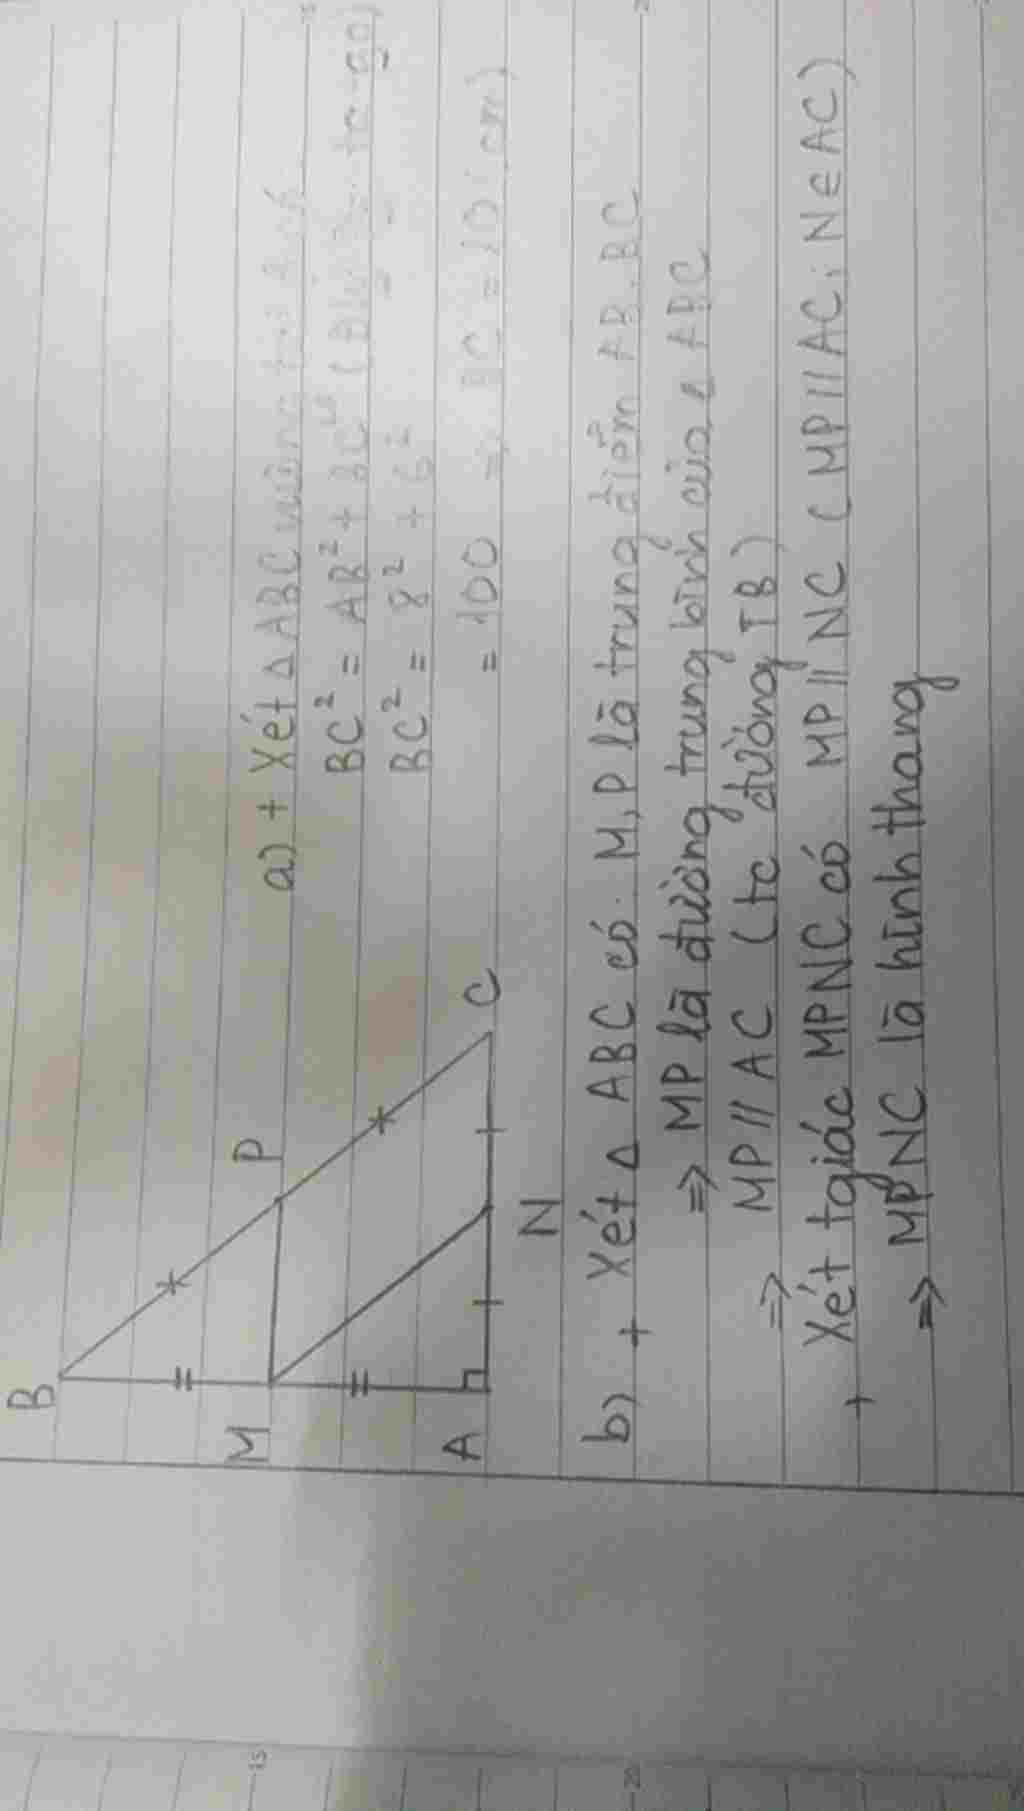 B
M
P
A
N
C
a) + Xét Δ ABC vuông tại A có
BC² = AB² + BC² (Định lý
BC² = 8² + 6²
= 100 => BC = 10 (cm)
b) + Xét Δ ABC có. M, P là trung điểm AB, BC
=> MP là đường trung bình của Δ ABC
=> MP // AC (tc đường TB)
+ Xét tgiác MPNC có MP // NC (MP // AC; N ∈ AC)
=> MPNC là hình thang
15
20